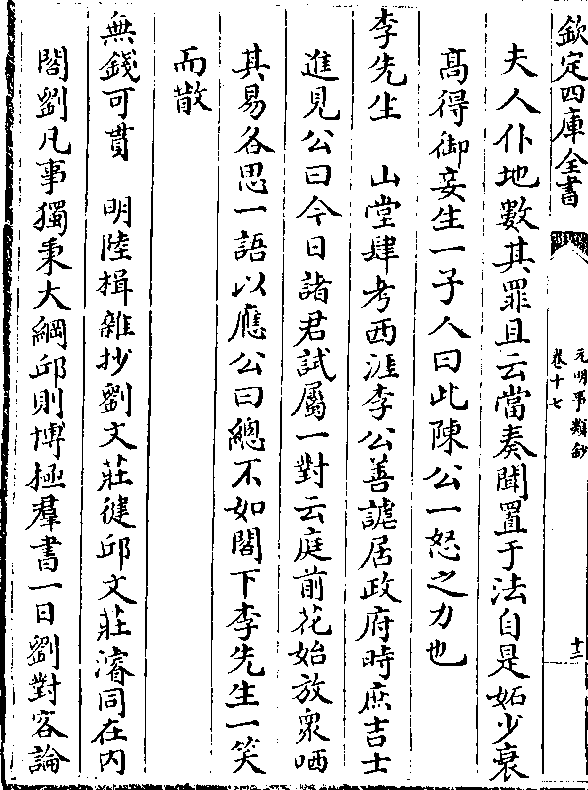 欽定四庫全書
元明事類鈔
卷十七
十二
夫人仆地數其罪且云當奏聞置于法自是妬少衰
高得御妾生一子人曰此陳公一怒之力也
李先生　山堂肆考西涯李公善謔居政府時庶吉士
進見公曰今日諸君試屬一對云庭前花始放衆哂
其易各思一語以應公曰總不如閣下李先生一笑
而散
無錢可貫　明陸楫雜抄劉文莊健邱文莊濬同在内
閣劉凡事獨秉大綱邱則博極羣書一日劉對客論